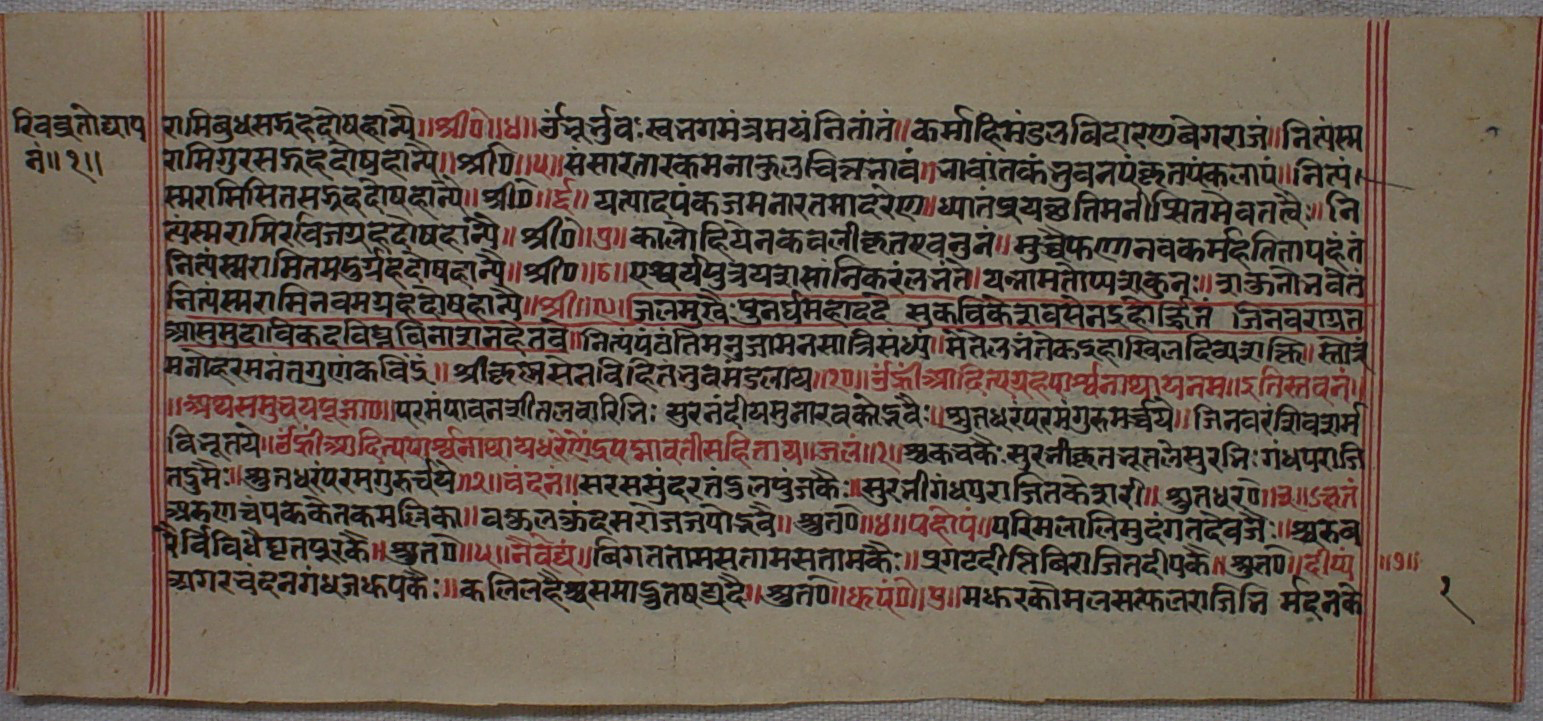 रिवव्रतोद्याप
नं॥१॥
रामिबुधसद्ग्रहदोषहान्यै॥श्रीपा०॥४॥ ॐभूर्भुवःस्वभगमंत्रमयंनितांतं॥कर्माहिमंडलविदारणवेगराजं॥नित्यंस्म
रामिगुरसद्ग्रहदोषहान्यै॥श्रीपा॥५॥संसारतारकमनाकुलचित्तभावं॥भावांतकंभुवनपंकृतपंकलापं॥नित्यं।
स्मरामिसितसद्ग्रहदोषहान्यै॥श्रीपा०॥६॥यत्पादपंकजमनारतमादरेण॥ध्यातंप्रयच्छतिमनीप्सितमेवतत्वैः॥नि
त्यंस्मरामिरविजग्रहदोषहान्यै॥श्रीपा०॥७॥कालोहियेनकवलीकृतएवनुनं॥मुच्चैफणानवकर्महतितापहंतं
नित्यंस्मरामितमसुर्यहदोषहान्यै॥श्रीपा०॥८॥एश्वर्यपुत्रयशसांनिकरंलभंते॥यन्नामतोप्यशकुनः॥शकुनोभवेतं
नित्यंस्मरामिनवमग्रहदोषहान्यै॥श्री॥९॥जिलमुखैःपुनर्धमहादद सुकविकेशवसेनइहोर्ज्जितं जिनवरायत
आसुमुदाविकदविघ्नविनाशनहेतवे॥नित्यंपंठंतिमनुजामनसात्रिसंध्यं॥मेतेलभंतेकइहाखिलदिव्यशक्ति॥स्तोत्रं
मनोहरमनंतगुणंकविंद्रं॥श्रीकृष्णसेनविहितभुवमंडलाय॥१०॥ॐह्रींआदित्यग्रहपार्श्वनाथायनमः॥इतिस्तवनं॥
॥अथसमुचयपूजा॥परमंपावनशीतलवारिभिः सुरनंदीयमुनारवकोद्भवैः॥श्रुतधरंपरमंगुरुमर्च्चये॥जिनवरंशिवशर्म
विभूतये॥ॐह्रींआदित्यपार्श्वनाथायधरेणेंद्रपद्मावतीसहिताय॥जलं॥१॥श्रकवकैःसुरभीकृतभूतलेसुरभिःगंधपराजि
तद्रुमैः॥श्रुतधरंपरमगुरुर्चये॥२॥चंदनं॥सरससुंदरतंडुलपुंजकैः॥सुरभीगंधपराजितकैशरी॥श्रुतधर०॥३॥ऽक्षतं
अरुणचंपककेतकमलिका॥वकुलकुंदसरोजजपोद्भवै॥श्रुत०॥४॥पहोपं॥परिमलालिमुदंगतदेवजैः॥श्चरुव
रैर्विविधैघृतपुरकै॥श्रुत०॥५॥नैवेद्यं॥बिगततामसतामसतामकैः॥प्रगटदीप्तिबिराजितदीपकै॥श्रुत०॥दीपं॥७॥
अगरचंदनगंधजधूपकैः॥कलिलहैश्चसमाद्रुतषट्पदै॥श्रुत०॥धूपं॥७॥मधुरकोमलसत्फलराजिभि र्मदनके
१